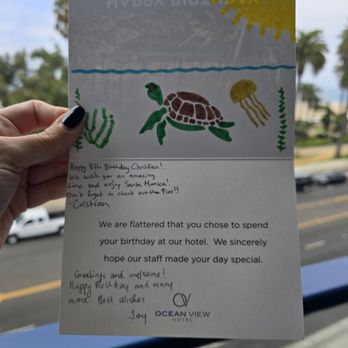 HAPPY BIRTHDAY
Happy 8th Birthday Christian!
We wish you an amazing
time and enjoy Santa Monica!
Don't forget to check out the Pier!!
- Cristian
We are flattered that you chose to spend
your birthday at our hotel. We sincerely
hope our staff made your day special.
Greetings and welcome!
Happy Birthday and many
more. Best Wishes
Joy
OV
OCEAN VIEW
HOTEL